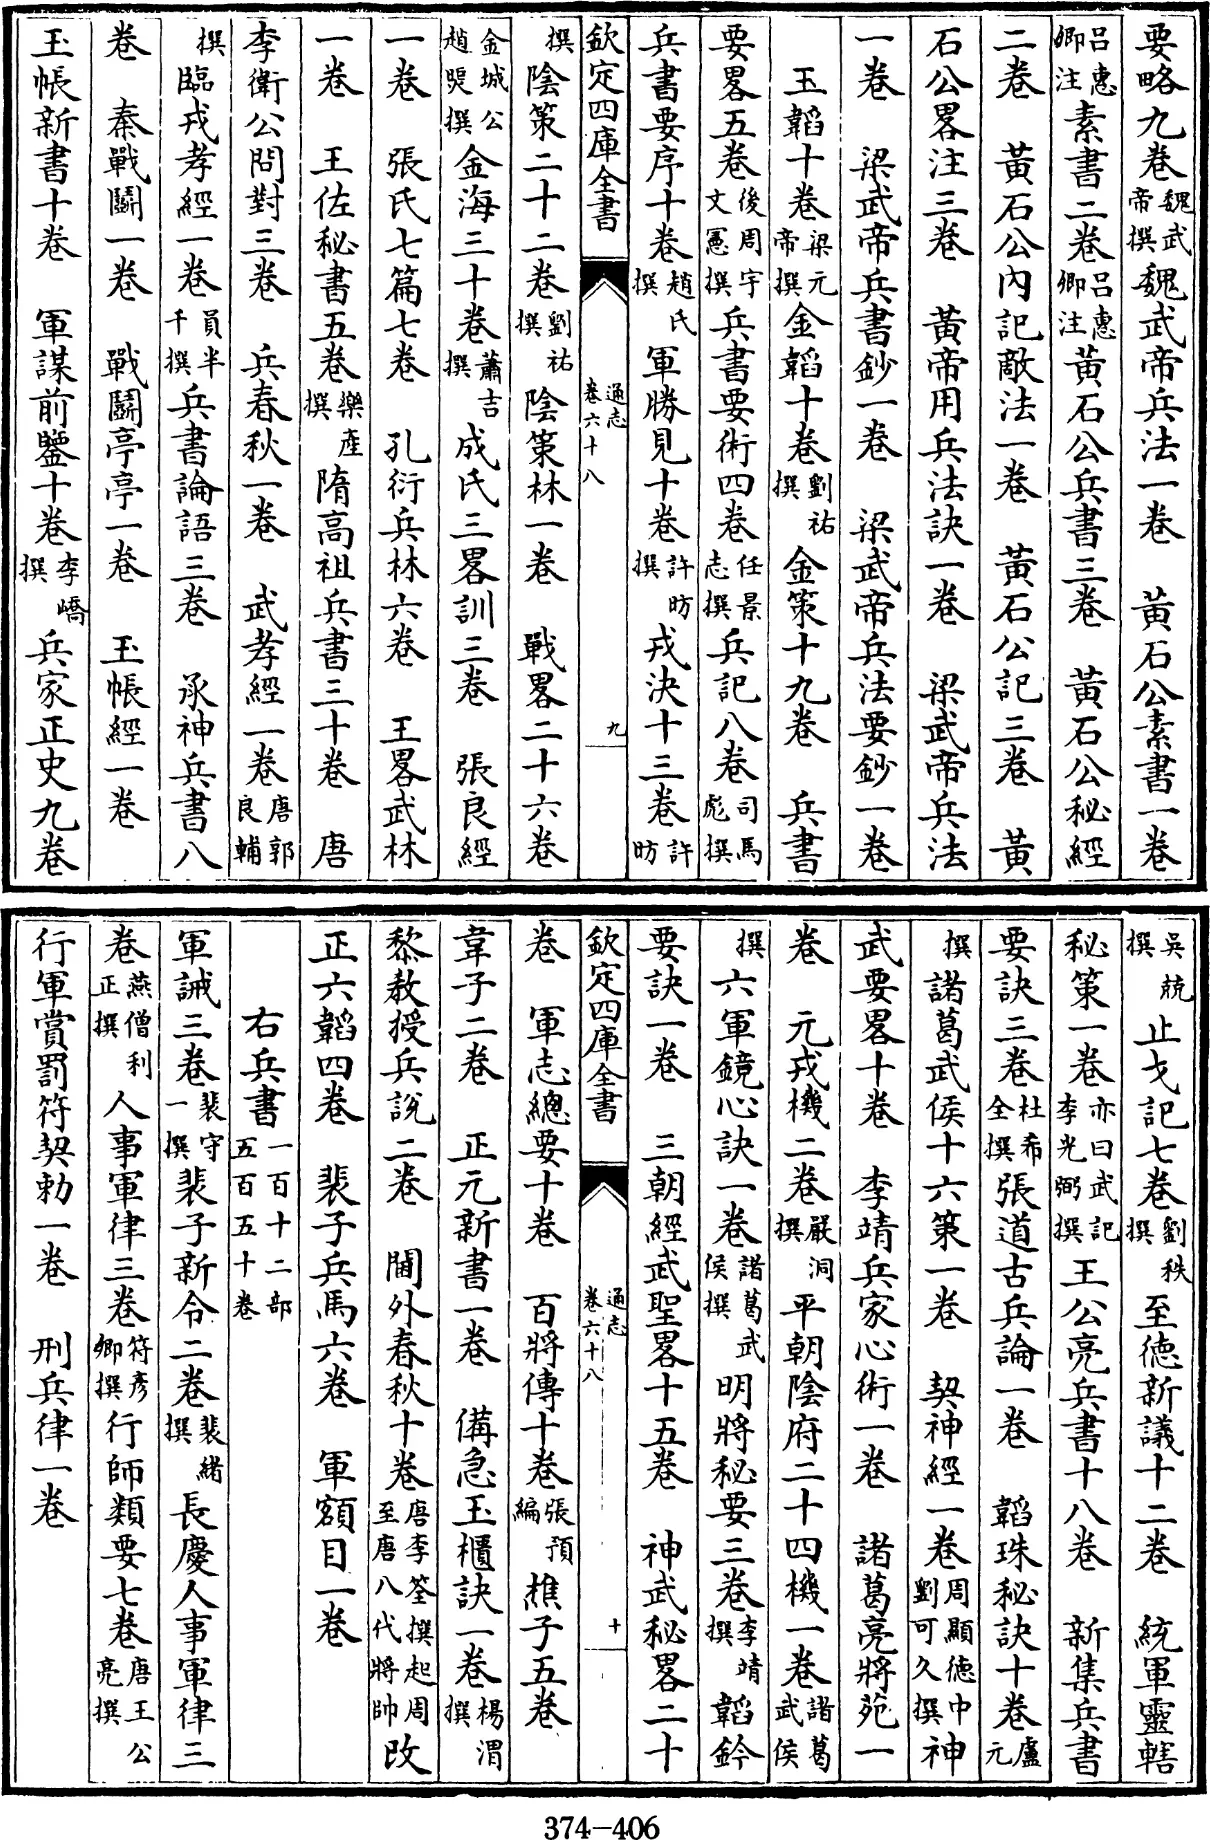 要略九卷魏武帝撰魏武帝兵法一卷　黃石公素書一卷
呂惠卿注素書二卷呂惠卿注黃石公兵書三卷　黃石公秘經
二卷　黃石公內記敵法一卷　黃石公記三卷　黃
石公畧注三卷　黃帝用兵法訣一卷　梁武帝兵法
一卷　梁武帝兵書鈔一卷　梁武帝兵法要鈔一卷
玉韜十卷梁元帝撰金韜十卷劉祐撰金策十九卷　兵書
要畧五卷後周宇文憲撰兵書要術四卷任景志撰兵記八卷司馬彪撰
兵書要序十卷趙氏撰軍勝見十卷許昉撰戎決十三卷許昉
欽定四庫全書　通志卷六十八　九
撰陰策二十二卷劉祐撰陰策林一卷　戰畧二十六卷
金城公趙煚撰金海三十卷蕭吉撰成氏三畧訓三卷　張良經
一卷　張氏七篇七卷　孔衍兵林六卷　王畧武林
一卷　王佐秘書五卷樂產撰隋高祖兵書三十卷　唐
李衛公問對三卷　兵春秋一卷　武孝經一卷唐郭良輔
撰臨戎孝經一卷員半千撰兵書論語三卷　承神兵書八
卷　秦戰鬭一卷　戰鬭亭亭一卷　玉帳經一卷
玉帳新書十卷　軍謀前鑒十卷李嶠撰兵家正史九卷
吳兢撰止戈記七卷劉秩撰至德新議十二卷　統軍靈轄
秘策一卷亦曰武記李光弼撰王公亮兵書十八卷　新集兵書
要訣三卷杜希全撰張道古兵論一卷　韜珠秘訣十卷盧元
撰諸葛武侯十六策一卷　契神經一卷周顯德中劉可久撰神
武要畧十卷　李靖兵家心術一卷　諸葛亮將苑一
卷　元戎機二卷嚴洞撰平朝陰府二十四機一卷諸葛武侯
撰六軍鏡心訣一卷諸葛武侯撰明將秘要三卷李靖撰韜鈐
要訣一卷　三朝經武聖畧十五卷　神武秘畧二十
欽定四庫全書　通志卷六十八　十
卷　軍志總要十卷　百將傳十卷張預編樵子五卷
韋子二卷　正元新書一卷　備急玉櫃訣一卷楊渭撰
黎教授兵説二卷　閫外春秋十卷唐李筌撰起周至唐八代將帥改
正六韜四卷　裴子兵馬六卷　軍額目一卷
右兵書一百十二部五百五十卷
軍誡三卷裴守一撰裴子新令二卷裴緒撰長慶人事軍律三
卷燕僧利正撰人事軍律三卷符彥卿撰行師類要七卷唐王公亮撰
行軍賞罰符契勅一卷　刑兵律一卷
374-406